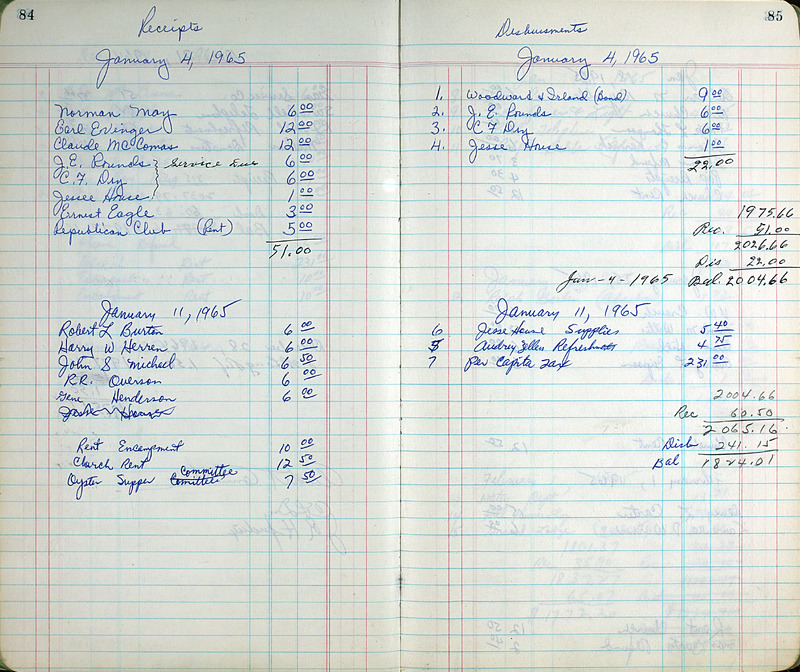 84
Receipts
January 4, 1965
Norman May 6 00
Earl Evinger 12 00
Claude McComas 12 00
J.E. Pounds } Service Due 6 00
C.F. Dry 6 00
Jessee House 1 00
Ernest Eagle 3 00
Republican Club (Rent) 5 00
51.00
January 11, 1965
Robert L Burton 6 00
Harry W Herren 6 00
John S Michael 6 50
R.R. Overson 6 00
Gene Henderson 6 00
Rent Encampment 10 00
Church Rent 12 50
Committee
Oyster Supper 7 50
85
Disbursments
January 4, 1965
1. Woodward & Ireland (Bond) 9 00
2. J.E. Pounds 6 00
3. C F Dry 6 00
4. Jesse House 1 00
22.00
1975.66
Rec. 51.00
2026.66
Dis 22.00
Jan-4-1965 Bal. 2004.66
January 11, 1965
6 Jesse House Supplies 5 40
5 Audrey Zellers Refreshments 4 75
7 Per Capita Tax 231 00
2004.66
Rec 60.50
2065.16
Disb 241.15
Bal 1824.01